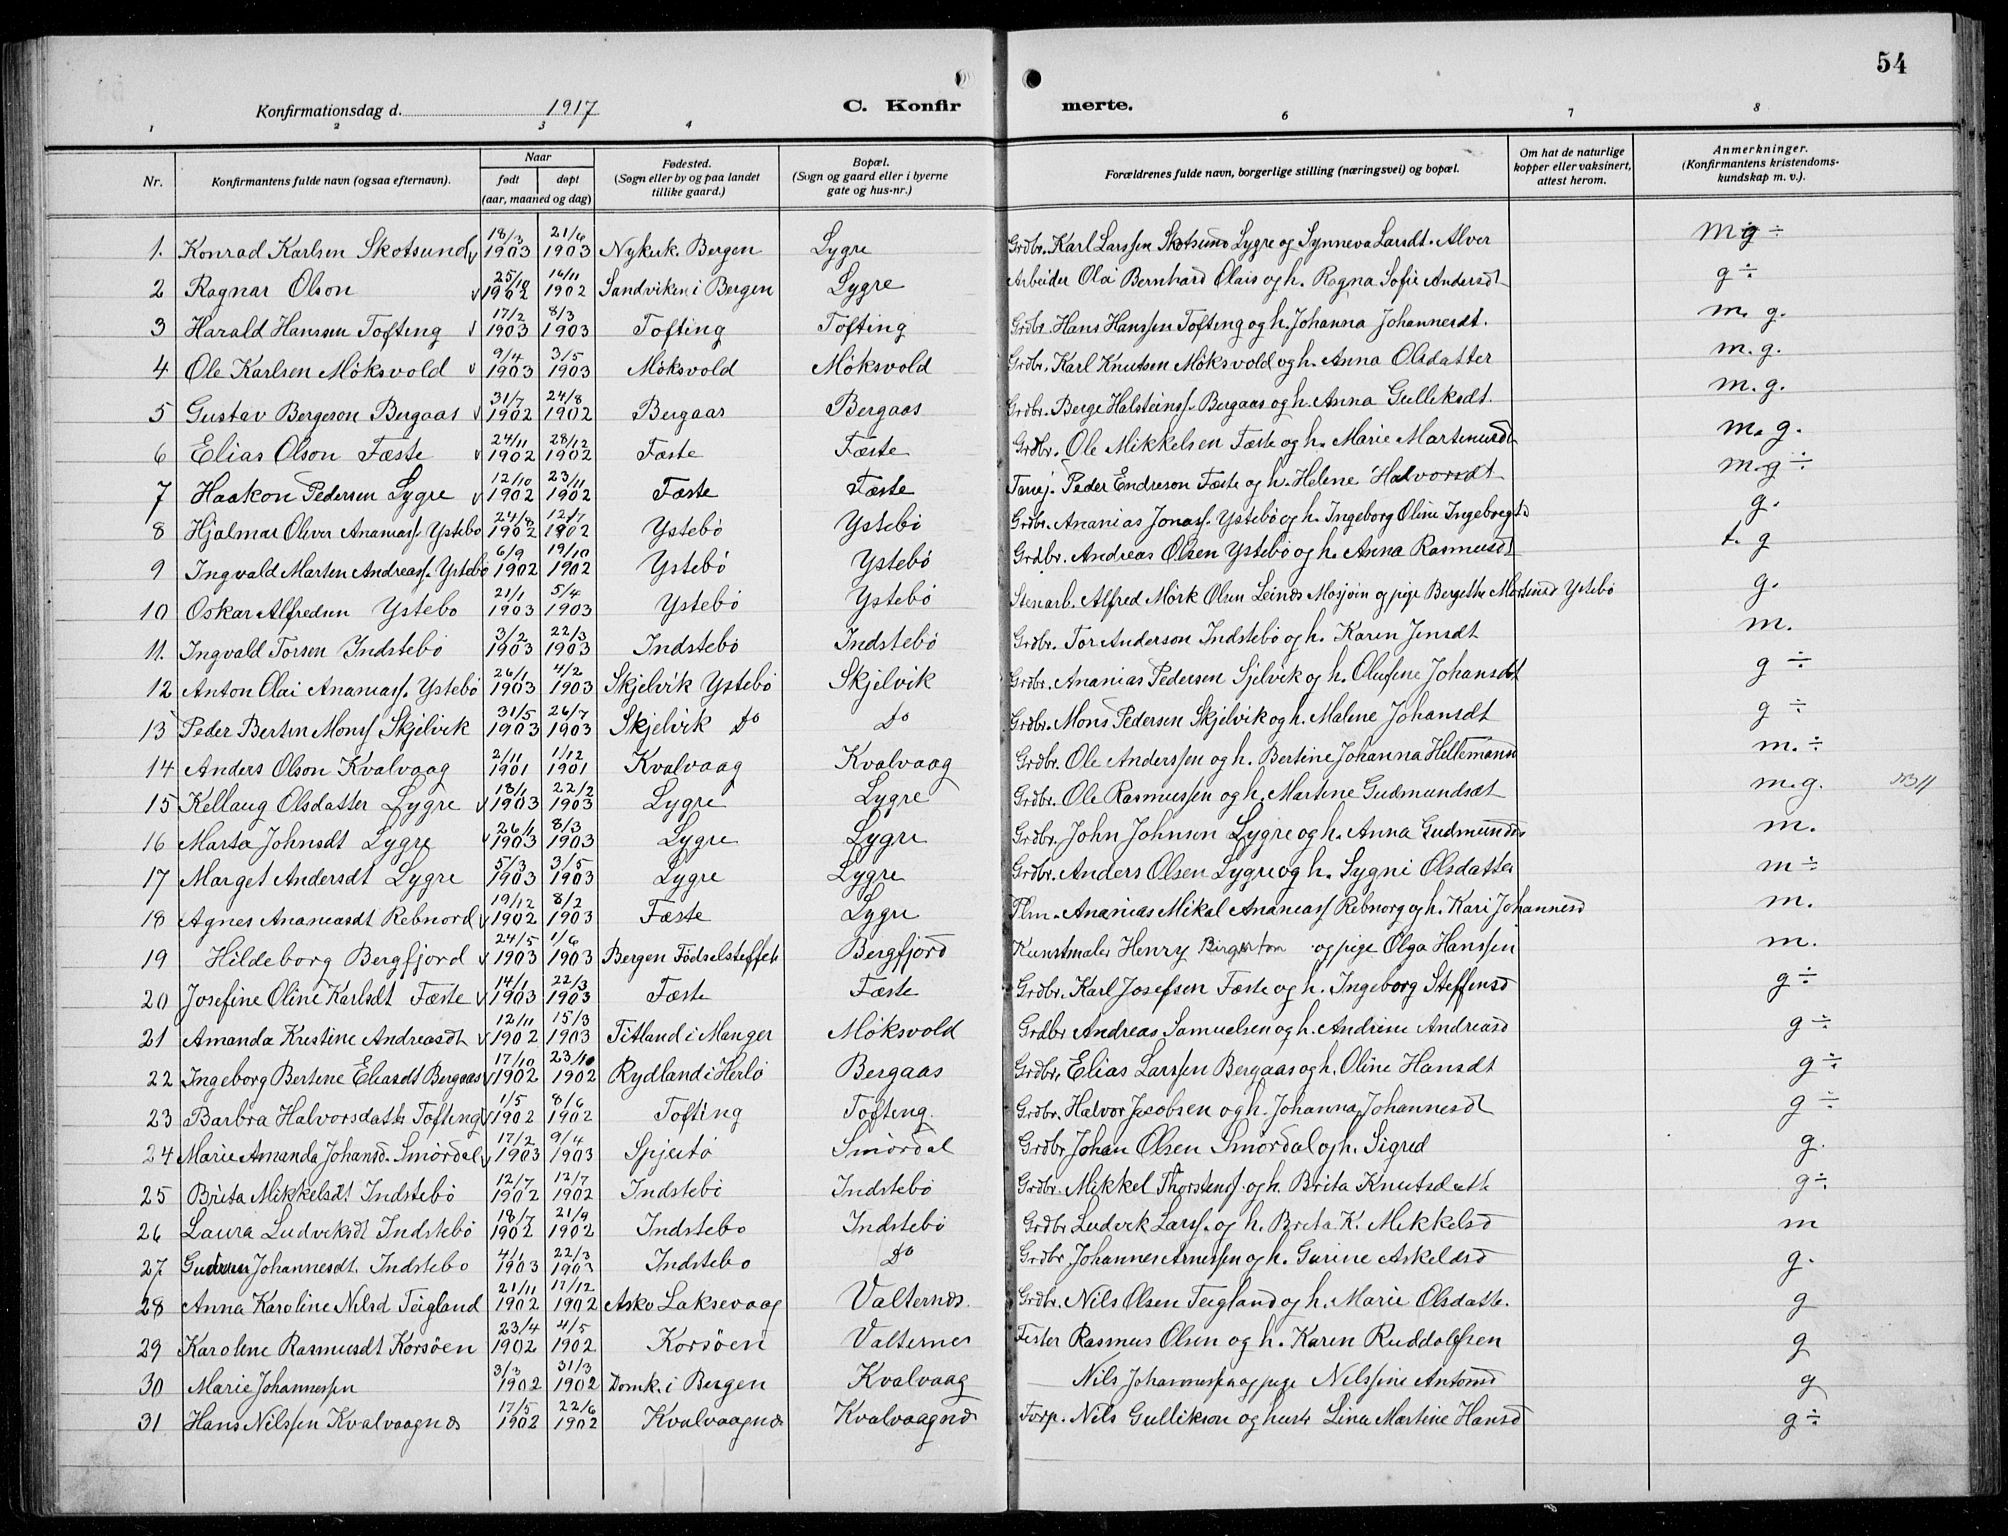 54
Konfirmationsdag d. 1917 C. Konfirmerte.
1 2 3 4 6 7 8
Nr. Konfirmantens fulde navn (ogsaa efternavn). Naar født døpt (aar, maaned og dag) Fødested. (Sogn eller by og paa landet tillike gaard.) Bopæl. (Sogn og gaard eller i byerne gate og hus-nr.) Forældrenes fulde navn, borgerlige stilling (næringsvei) og bopæl. Om hat de naturlige kopper eller vaksinert, attest herom. Anmerkninger. (Konfirmantens kristendomskundskap m. v.).
1. Konrad Karlsen Skotsund v 18/3 1903 21/6 1903 Nykirk. Bergen Lygre Grdbr. Karl Larssen Skotsund Lygre og Synneva Larsdt. Alver mg ÷
2 Ragnar Olson v 25/10 1902 16/11 1902 Sandviken i Bergen Lygre Arbeider Olai Bernhard Olais og h. Ragna Sofie Andersdt g ÷
3 Harald Hanssen Tofting v 17/2 1903 8/3 1903 Tofting Tofting Grdbr. Hans Hanssen Tofting og h. Johanna Johannesdt. m. g.
4 Ole Karlsen Möksvold v 9/4 1903 3/5 1903 Möksvold Möksvold Grdbr. Karl Knutsen Möksvold og h. Anna Olsdatter m. g.
5 Gustav Bergeson Bergaas v 31/7 1902 24/8 1902 Bergaas Bergaas Grdbr. Berge Halsteinss. Bergaas og h. Anna Gulliksdt. m. g.
6 Elias Olson Fæste v 24/11 1902 28/12 1902 Fæste Fæste Grdbr. Ole Mikkelsen Fæste og h. Marie Martinusdt m. g.
7 Haakon Pedersen Lygre v 12/10 1902 23/11 1902 Fæste Fæste Peder Endreson Fæste og h. Helene Halvorsdt mg ÷
8 Hjalmar Oliver Ananiass. Ystebö 24/8 1902 12/7 1902 Ystebö Ystebö Grdbr. Ananias Jonass. Ystebö og h. Ingeborg Oline Ingebrigtsd g.
9 Ingvald Marten Andreass. Ystebö 6/9 1902 19/10 1902 Ystebö Ystebö Grdbr. Andreas Olsen Ystebö og h. Anna Rasmusdt t. g
10 Oskar Alfredsen Ystebo 21/1 1903 5/4 1903 Ystebö Ystebö Stenarb. Alfred Mörk Olsen Leines Mosjöin og pige Bergithe Mortensd Ystebö g.
11. Ingvald Torsen Indstebö 3/2 1903 22/3 1903 Indstebö Indstebö Grdbr. Tor Anderson Indstebö og h. Karen Jensdt m.
12 Anton Olai Ananiass. Ystebö 26/1 1903 4/2 1903 Skjelvik Ystebö Skjelvik Grdbr. Ananias Pedersen Sjelvik og h. Olufine Johansdt g ÷
13 Peder Berten Monss Skjelvik 31/5 1903 26/7 1903 Skjelvik Do Do Grdbr. Mons Pedersen Skjelvik og h. Malene Johansdt g ÷
14 Anders Olson Kvalvaag 2/11 1901 1/12 1901 Kvalvaag Kvalvaag Grdbr. Ole Anderssen og h. Bertine Johanna Hillemansd m. ÷
15 Kellaug Olsdatter Lygre v 18/1 1903 22/2 1903 Lygre Lygre Grdbr. Ole Rasmussen og h. Martine Gudmundsdt m. g.
16 Marta Johnsdt Lygre v 26/1 1903 8/3 1903 Lygre Lygre Grdbr. John Johnson Lygre og h. Anna Gudmundsd m.
17 Marget Andersdt Lygre 5/3 1903 3/5 1903 Lygre Lygre Grdbr. Anders Olsen Lygre og h. Sygni Olsdatter m ÷
18 Agnes Ananiasdt Rebnord v 19/12 1902 8/2 1903 Fæste Lygre Plm. Ananias Mikal Ananiass Rebnorg og h. Kari Johannesd m.
19 Hildeborg Bergfjord v 24/5 1903 1/6 1903 Bergen Födselsteffels Bergfjord Kunstmaler Henry og pige Olga Hanssen m.
20 Josefine Oline Karlsdt Fæste v 14/1 1903 22/3 1903 Fæste Fæste Grdbr. Karl Josefsen Fæste og h. Ingeborg Steffensd g ÷
21 Amanda Kristine Andreasdt v 12/11 1902 15/3 1903 Titland i Manger Möksvold Grdbr Andreas Samuelsen og h. Andrine Andreasd g ÷
22 Ingeborg Bertine Eliasdt Bergaas v 17/10 1902 23/10 1902 Rydland i Herlö Bergaas Grdbr. Elias Larssen Bergaas og h. Oline Hansdt g ÷
23 Barbra Halvorsdatter Tofting v 1/5 1902 8/6 1902 Tofting Tofting. Grdbr. Halvor Jacobsen og h. Johanna Johannesdt g ÷
24 Marie Amanda Johansd. Smördal v 17/2 1903 9/4 1903 Smördal Grdbr Johan Olsen Smördal og h. Sigred g.
25 Brita Mikkelsdt Indstebö 12/7 1902 12/7 1902 Indstebö Indstebö Grdbr. Mikkel Thorstenss. og h. Brita Knutsdatt g ÷
26 Laura Ludviksdt Indstebö 18/7 1902 21/9 1902 Indstebo Indstebö Grdbr Ludvik Larss. og h. Brita K. Mikkelsd m
27 Gudrun Johannesdt. Indstebo 4/1 1903 22/3 1903 Indstebo Do Grdbr Johannes Arnessen og h. Gurine Askeldsd g.
28 Anna Karoline Nilsd Teigland 21/11 1902 17/12 1902 Asko Laksevaag Valternes. Grdbr. Nils Olsen Teigland og h. Marie Olsdatte. g
29 Karoline Rasmusdt Korsöen 23/4 1902 4/5 1902 Korsöen Valternes Fester Rasmus Olsen og h. Karen Ruddolfsen g
30 Marie Johannessen 3/3 1902 31/3 1902 Domk. i Bergen Kvalvaag Nils Johannessen og pige Nilssine Antonsd g
31 Hans Nilssen Kvalvaagnes 17/5 1902 22/6 1902 Kvalvaagnes Kvalvaagnes Forp. Nils Gullikson og hustr Lina Martine Hansd g ÷